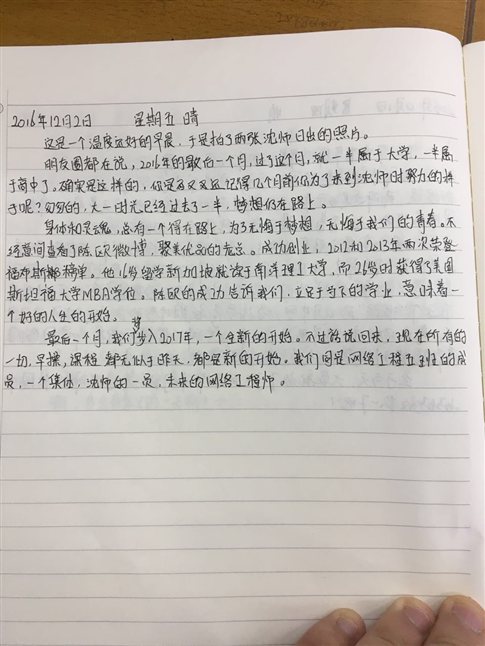 2016年12月2日 星期五 晴
这是一个温度还好的早晨，于是拍了两张沈师日出的照片。
朋友圈都在说，2016年的最后一个月，过了这个月，就一半属于大学，一半属
于高中了。确实是这样的，你是否又还记得几个月前你为了来到沈师时努力的样
子呢？匆匆的，大一时光已经过去了一半，梦想仍在路上。
身体和灵魂，总有一个得在路上，为了无悔于梦想，无悔于我们的青春。不
经意间查看了陈欧微博，聚美优品的老总。成功创业，2012和2013年两次荣登
福布斯榜榜单。他16岁留学新加坡就读于南洋理工大学，而26岁时获得了美国
斯坦福大学MBA学位。陈欧的成功告诉我们，立足于当下的学业，意味着一
个好的人生的开始。
最后一个月，我们将步入2017年，一个全新的开始。不过话说回来，现在所有的
一切，早操，课程都无似于昨天，都是新的开始。我们同是网络工程五班的成
员，一个集体，沈师的一员，未来的网络工程师。